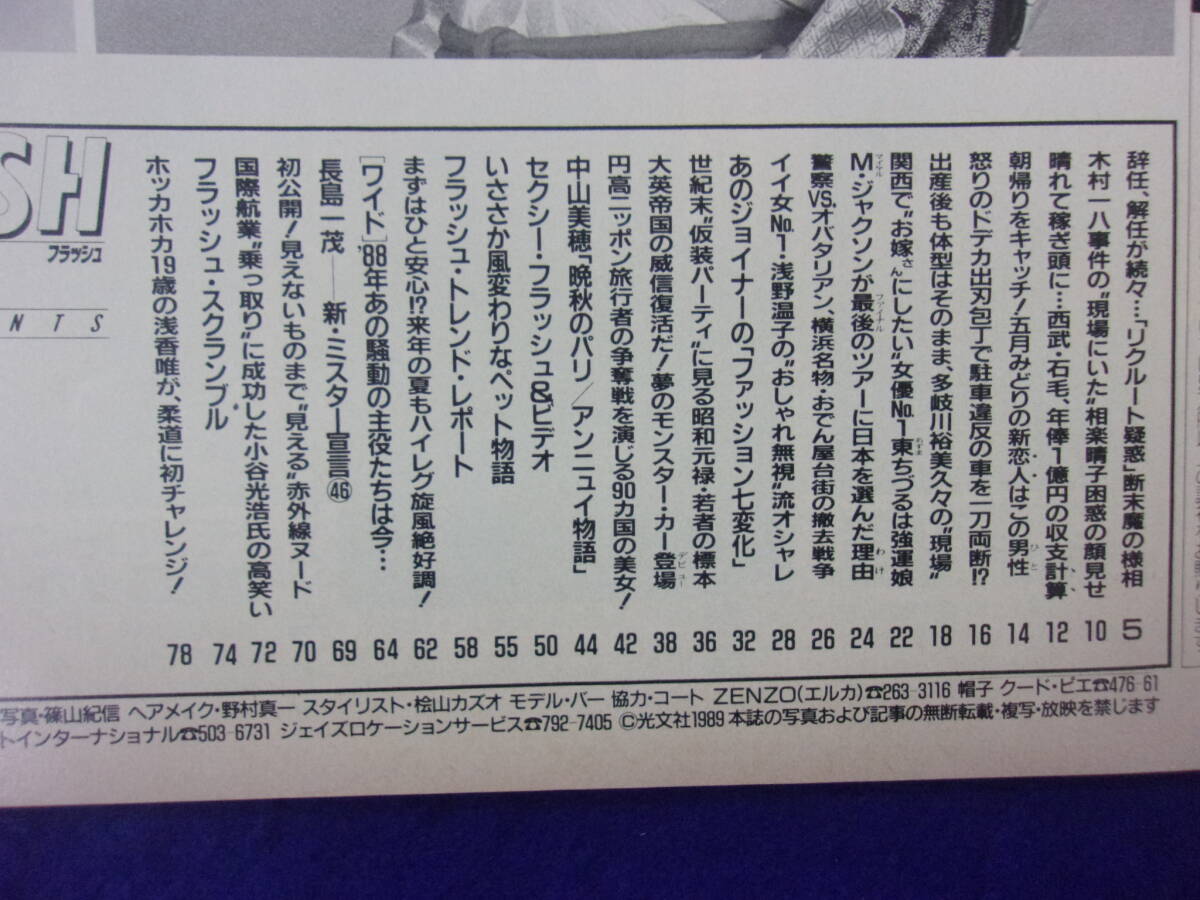 SH
フラッシュ
NTS
辞任、解任が続々…「リクルート疑惑」断末魔の様相 5
木村一八事件の"現場にいた"相楽晴子困惑の顔見せ 10
晴れて稼ぎ頭に…西武・石毛、年俸1億円の収支計算 12
朝帰りをキャッチ!五月みどりの新恋人はこの男性 ひと 14
怒りのドデカ出刃包丁で駐車違反の車を一刀両断!? 16
出産後も体型はそのまま、多岐川裕美久々の"現場" 18
関西で"お嫁さんにしたい"女優No.1東ちづるは強運娘 あずま 22
M・ジャクソンが最後のツアーに日本を選んだ理由 マイケル ファイナル わけ 24
警察VS.オバタリアン、横浜名物・おでん屋台街の撤去戦争 26
イイ女No.1・浅野温子の"おしゃれ無視"流オシャレ 28
あのジョイナーの「ファッション七変化」 32
世紀末"仮装パーティ"に見る昭和元禄・若者の標本 36
大英帝国の威信復活だ!夢のモンスター・カー登場 デビュー 38
円高ニッポン旅行者の争奪戦を演じる90カ国の美女! 42
中山美穂「晩秋のパリ/アンニュイ物語」 44
セクシー・フラッシュ&ビデオ 50
いささか風変わりなペット物語 55
フラッシュ・トレンド・レポート 58
まずはひと安心!?来年の夏もハイレグ旋風絶好調! 62
[ワイド]'88年あの騒動の主役たちは今… 64
長島一茂——新・ミスター宣言㊻ 69
初公開!見えないものまで"見える"赤外線ヌード 70
国際航業"乗っ取り"に成功した小谷光浩氏の高笑い 72
フラッシュ・スクランブル 74
ホッカホカ19歳の浅香唯が、柔道に初チャレンジ! 78
写真・篠山紀信 ヘアメイク・野村真一 スタイリスト・桧山カズオ モデル・バー 協力・コート ZENZO(エルカ)☎263-3116 帽子 クード・ピエ☎476-61
トインターナショナル☎503-6731 ジェイズロケーションサービス☎792-7405 ©光文社1989 本誌の写真および記事の無断転載・複写・放映を禁じます